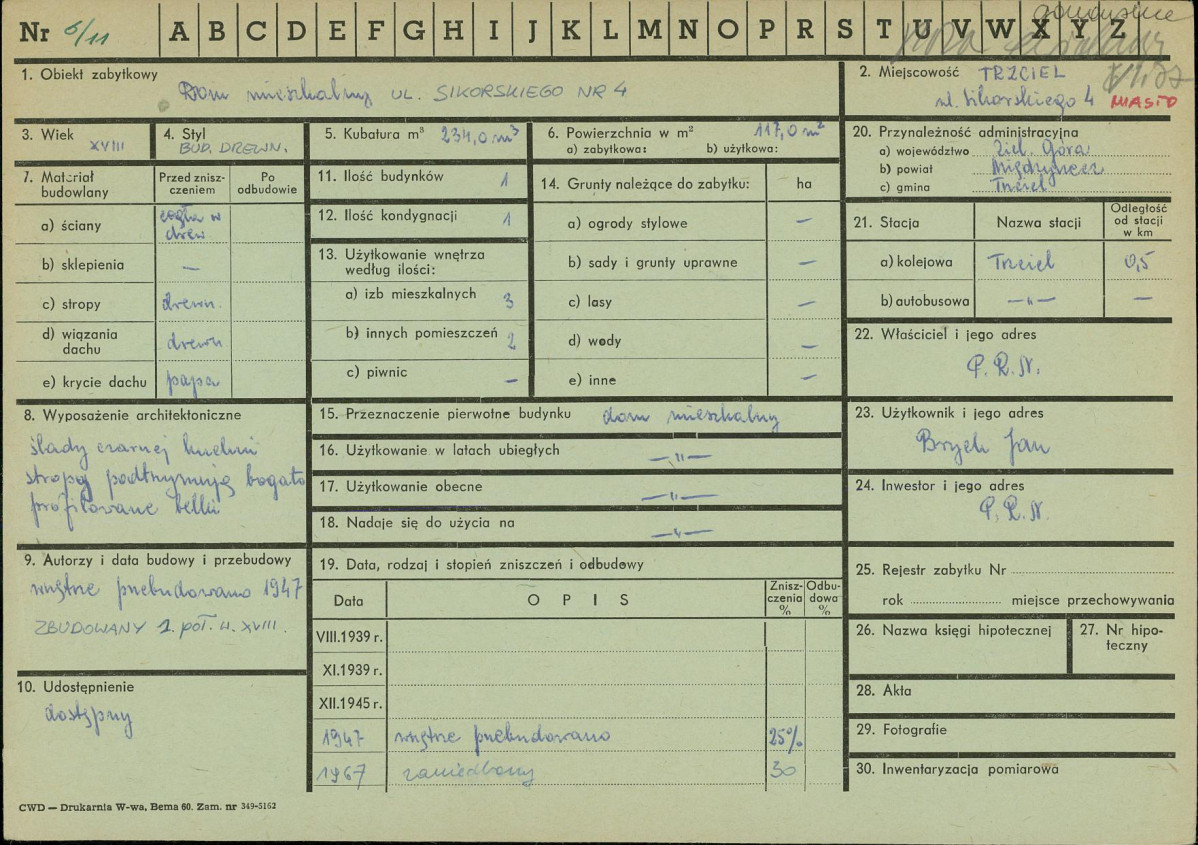 Nr 6/11 A B C D E F G H I J K L M N O P R S T U V W X Y Z
1. Obiekt zabytkowy
Dom mieszkalny UL. SIKORSKIEGO NR 4
2. Miejscowość TRZCIEL
ul. Sikorskiego 4 MIASTO
3. Wiek
XVIII
4. Styl
BUD. DREWN.
5. Kubatura m³ 234,0 m³
6. Powierzchnia w m² 117,0 m²
a) zabytkowa: b) użytkowa:
20. Przynależność administracyjna
a) województwo Ziel. Góra
b) powiat Międzyrzecz
c) gmina Trzciel
7. Materiał budowlany
Przed znisz-
czeniem
Po
odbudowie
a) ściany cegła w
drew.
b) sklepienia —
c) stropy drewn.
d) wiązania
dachu drewn
e) krycie dachu papa
11. Ilość budynków 1
12. Ilość kondygnacji 1
13. Użytkowanie wnętrza
według ilości:
a) izb mieszkalnych 3
b) innych pomieszczeń 2
c) piwnic —
14. Grunty należące do zabytku: ha
a) ogrody stylowe —
b) sady i grunty uprawne —
c) lasy —
d) wody —
e) inne —
21. Stacja Nazwa stacji Odległość
od stacji
w km
a) kolejowa Trzciel 0,5
b) autobusowa —„— —
22. Właściciel i jego adres
P.R.N.
8. Wyposażenie architektoniczne
ślady czarnej kuchni
stropy podtrzymują bogato
profilowane belki
15. Przeznaczenie pierwotne budynku dom mieszkalny
16. Użytkowanie w latach ubiegłych —„—
17. Użytkowanie obecne —„—
18. Nadaje się do użycia na —„—
23. Użytkownik i jego adres
Brych Jan
24. Inwestor i jego adres
P.R.N.
9. Autorzy i data budowy i przebudowy
wnętrze przebudowano 1947
ZBUDOWANY 2. POŁ. W. XVIII.
10. Udostępnienie
dostępny
19. Data, rodzaj i stopień zniszczeń i odbudowy
Data OPIS Znisz-
czenia
% Odbu-
dowa
%
VIII.1939 r.
XI.1939 r.
XII.1945 r.
1947 wnętrze przebudowano 25%
1967 zaniedbany 30
25. Rejestr zabytku Nr
rok miejsce przechowywania
26. Nazwa księgi hipotecznej
27. Nr hipo-
teczny
28. Akta
29. Fotografie
30. Inwentaryzacja pomiarowa
CWD — Drukarnia W-wa, Bema 60. Zam. nr 349-5162